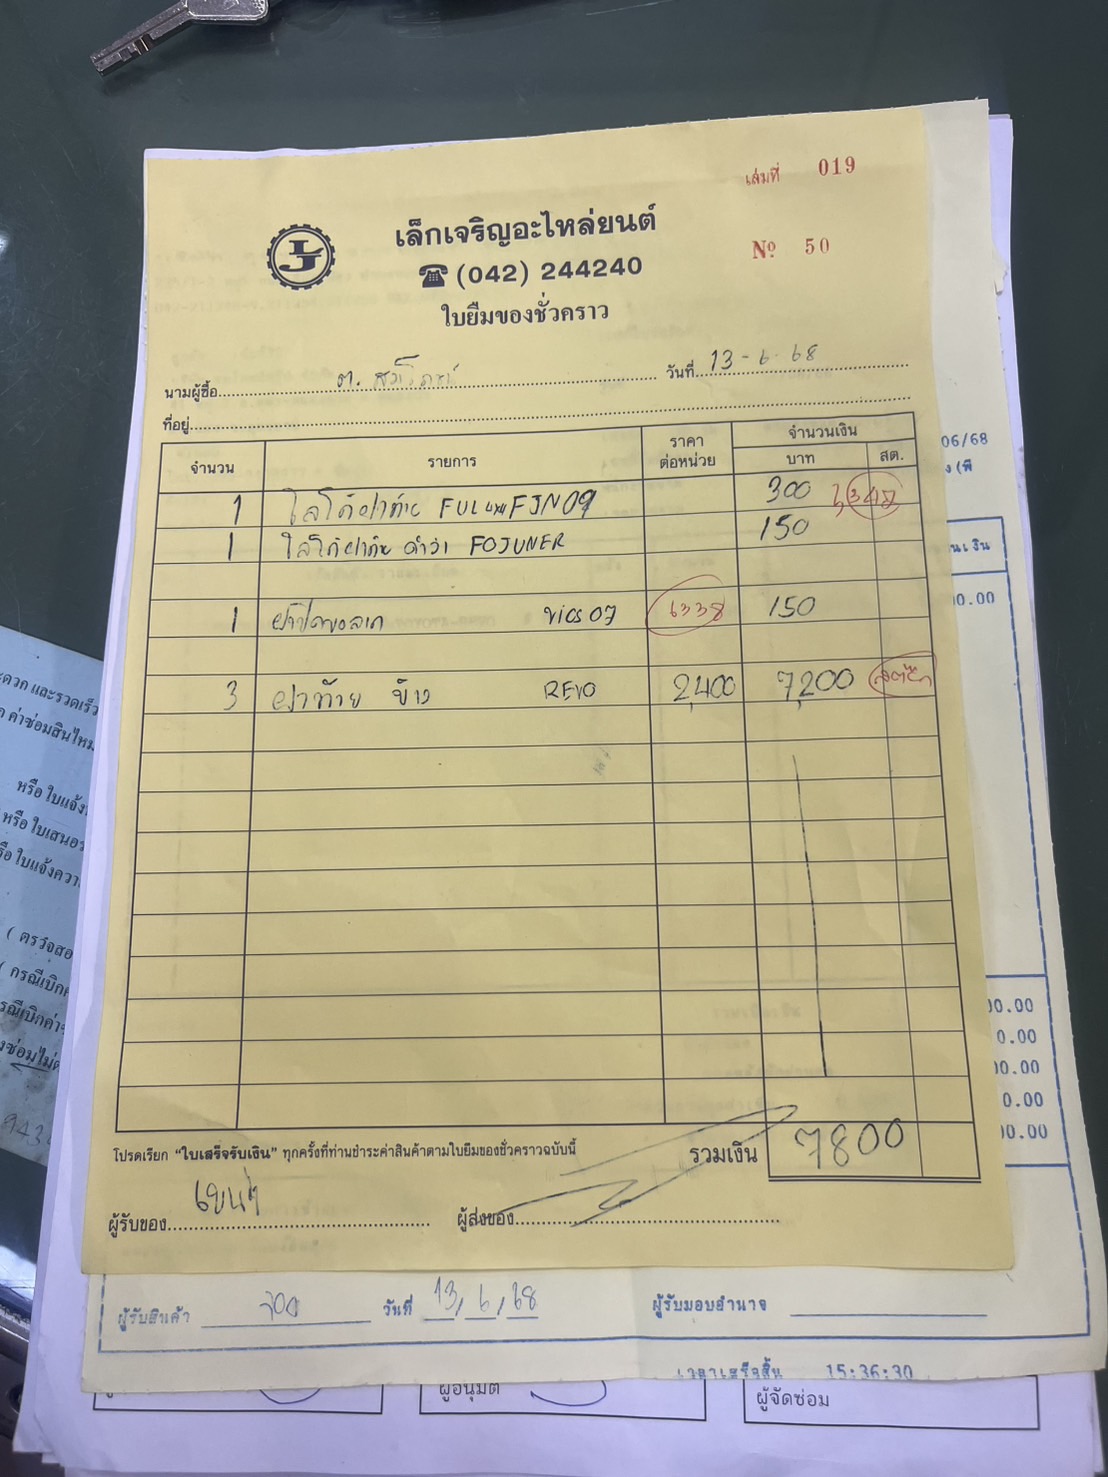 เล่มที่ 019
LJ
เล็กเจริญอะไหล่ยนต์
Nº 50
☎ (042) 244240
ใบยืมของชั่วคราว
นามผู้ซื้อ วันที่ 13-6-68
ที่อยู่
จำนวน รายการ ราคาต่อหน่วย จำนวนเงิน บาท สต.
1 โลโก้ฝาท้าย 300
1 โลโก้ฝาท้าย FOJUNER 150
1 vios 07 6338 150
3 ฝาท้าย ข้าง REVO 2,400 7,200 สต๊อก
โปรดเรียก “ใบเสร็จรับเงิน” ทุกครั้งที่ท่านชำระค่าสินค้าตามใบยืมของชั่วคราวฉบับนี้ รวมเงิน 7800
ผู้รับของ ผู้ส่งของ
06/68
(พี
นเงิน
00.00
00.00
0.00
00.00
0.00
00.00
ผู้รับสินค้า วันที่ 13, 6, 68 ผู้รับมอบอำนาจ
เวลาเสร็จสิ้น 15:36:30
ผู้อนุมัติ
ผู้จัดซ่อม
ะดวก และรวดเร็ว
ค่าซ่อมสินไหม
หรือ ใบแจ้ง
หรือ ใบเสนอ
รือ ใบแจ้งควา
( ตรวจสอ
( กรณีเบิก
รณีเบิกค่า
ซ่อมไม่